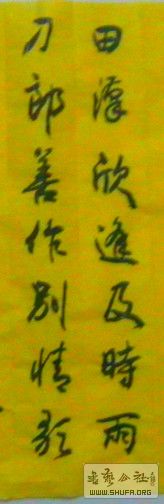 田漢欣逢及時雨
刀郎善作别情歌
书艺公社
WWW.SHUFA.ORG